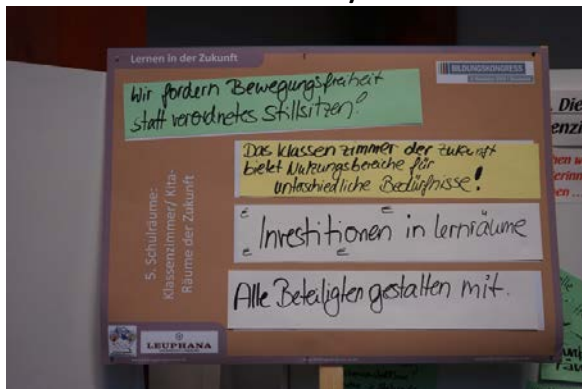 Lernen in der Zukunft
BILDUNGSKONGRESS
Wir fordern Bewegungsfreiheit
statt verordnetes Stillsitzen!
Das Klassenzimmer der Zukunft
bietet Nutzungsbereiche für
unterschiedliche Bedürfnisse!
€ €
Investitionen in Lernräume
€ €
Alle Beteiligten gestalten mit.
5. Schulräume:
Klassenzimmer/ Kita-
Räume der Zukunft
LEUPHANA
Die
enzi